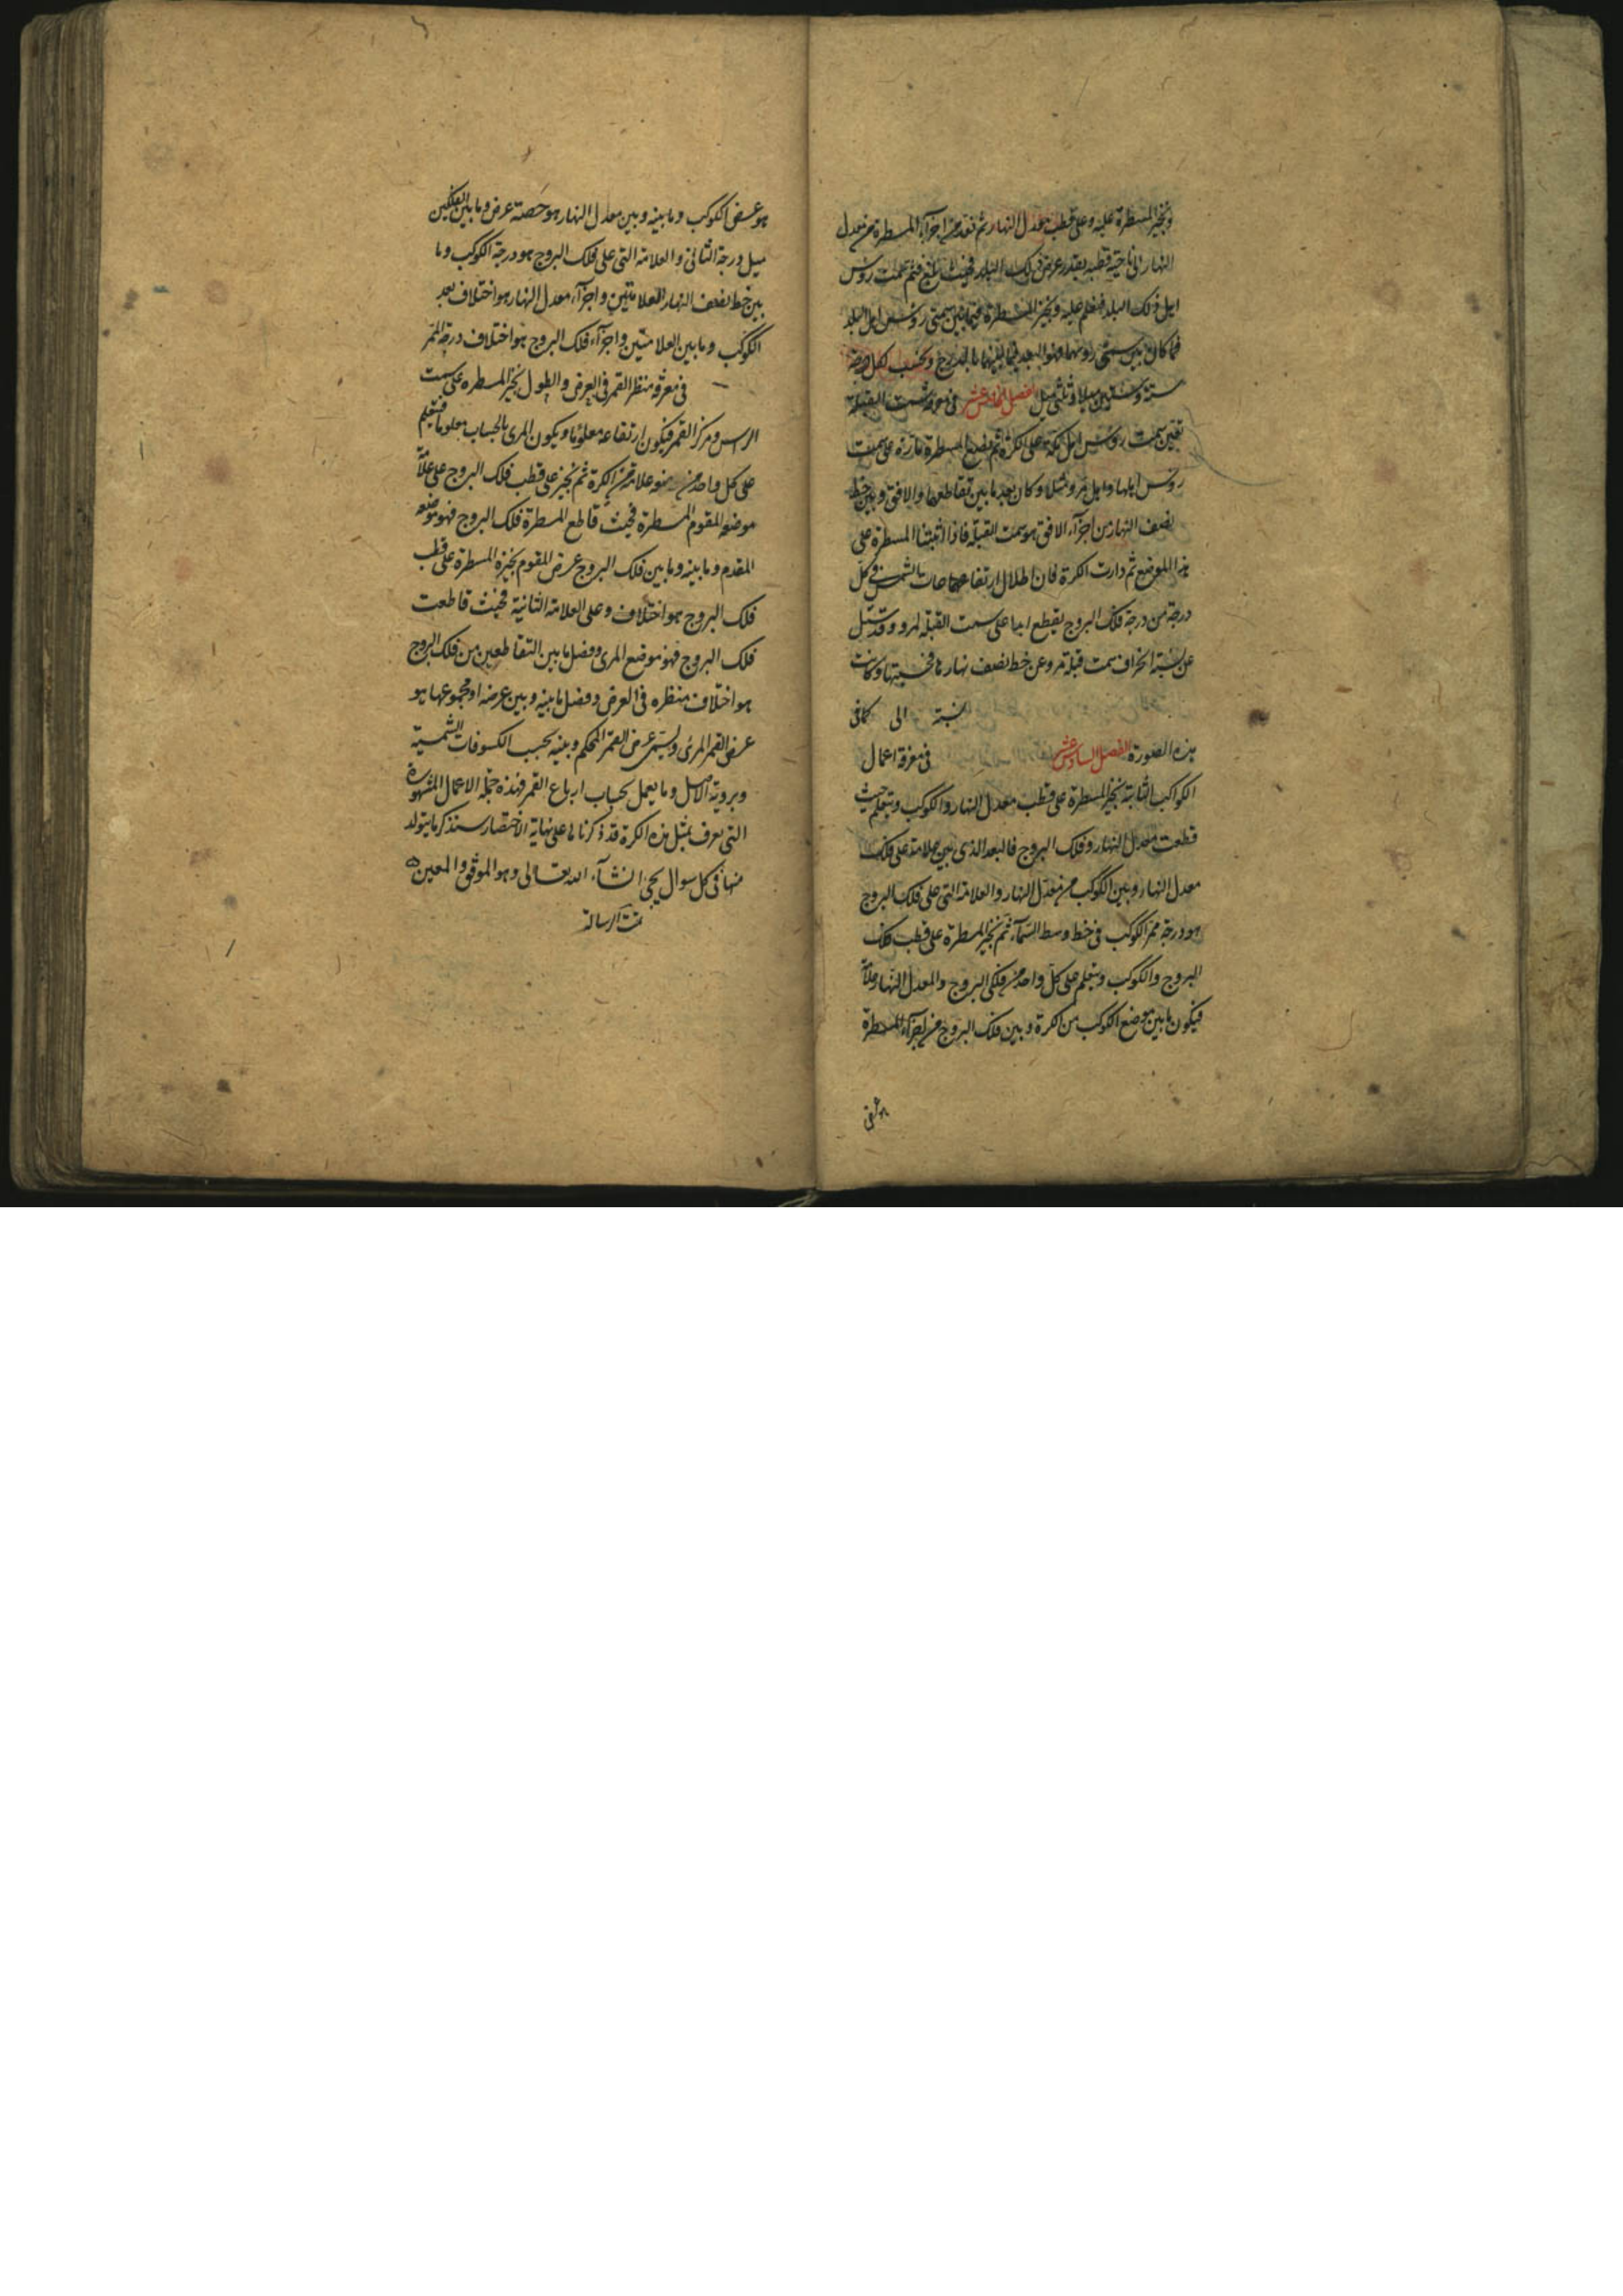 ونجيز المسطرة عليه وعلى قطب معدل النهار ثم نعد من اجزآء المسطرة من معدل
النهار الى ناحية قطبه بقدر عرض ذلك البلد فحيث بلغ فثم سمت رؤس
اهل ذلك البلد فنعلم عليه ونجيز المسطرة فيما بين سمتى رؤس اهل البلد
فما كان بين سمتى رؤسهما فهو البعد فيما بينهما بالدرج ونحسب لكل درجة
ستة وستين ميلا وثلثى ميل الفصل الخامس عشر فى معرفة سمت القبلة
نعين سمت رؤس اهل مكة على الكرة ثم نضع المسطرة مارة على سمت
رؤس اهلها واهل مرو مثلا وكان بعد ما بين تقاطعها والافق وبين خط
نصف النهار من اجزآء الافق هو سمت القبلة فاذا اثبتنا المسطرة على
هذا الموضع ثم دارت الكرة كان اظلال ارتفاعها حات الشمس فى كل
درجة من درجة فلك البروج يقطع ابدا على سمت القبلة لمرو وقد سئل
عن نسبة انحراف سمت قبلة مرو عن خط نصف نهارها فحسبتها وكانت
نسبة الى كما فى
هذه الصورة الفصل السادس عشر فى معرفة اعمال
الكواكب الثابتة نجيز المسطرة على قطب معدل النهار والكوكب ونتعلم حيث
قطعت معدل النهار وفلك البروج فالبعد الذى بين علامته على فلك
معدل النهار وبين الكوكب من معدل النهار والعلامة التى على فلك البروج
هو درجة ممر الكوكب فى خط وسط السمآء ثم نجيز المسطرة على قطب فلك
البروج والكوكب ونتعلم على كل واحد من فلكى البروج والمعدل النهار علامة
فيكون ما بين موضع الكوكب من الكرة وبين فلك البروج من اجزآء المسطرة
هو عرض الكوكب وما بينه وبين معدل النهار هو حصة عرض وما بين الفلكين
ميل درجة الثانى والعلامة التى على فلك البروج هو درجة الكوكب وما
بين خط نصف النهار العلامتين واجزآء معدل النهار هو اختلاف بعد
الكوكب وما بين العلامتين واجزآء فلك البروج هو اختلاف درجة الممر
فى معرفة منظر القمر فى العرض والطول نجيز المسطره على سمت
الرأس ومركز القمر فيكون ارتفاعه معلوما ويكون المرى بالحساب معلوما فنتعلم
على كل واحد من منهو علامة من الكرة ثم نجيز على قطب فلك البروج على علامة
موضعه المقوم المسطرة فحيث قاطع المسطرة فلك البروج فهو موضعه
المقدم وما بينه وما بين فلك البروج عرض المقوم نجيزه المسطرة على قطب
فلك البروج هو اختلاف وعلى العلامة الثانية فحيث قاطعت
فلك البروج فهو موضع المرى وفضل ما بين التقاطعين من فلك البروج
هو اختلاف منظره فى العرض وفضل ما بينه وبين عرضه او مجموعهما هو
عرض القمر المرئ ويسمى عرض القمر المحكم وبينه بحسب الكسوفات الشمسية
وبروية الاهل وما يعمل بحساب ارباع القمر فهذه جملة الاعمال المشهورة
التى يعرف بمثل هذه الكرة قد ذكرنا لها على نهاية الاختصار سنذكر ما يتولد
منها فى كل سوال يجئ انشآء الله تعالى وهو الموفق والمعين
تمت الرسالة